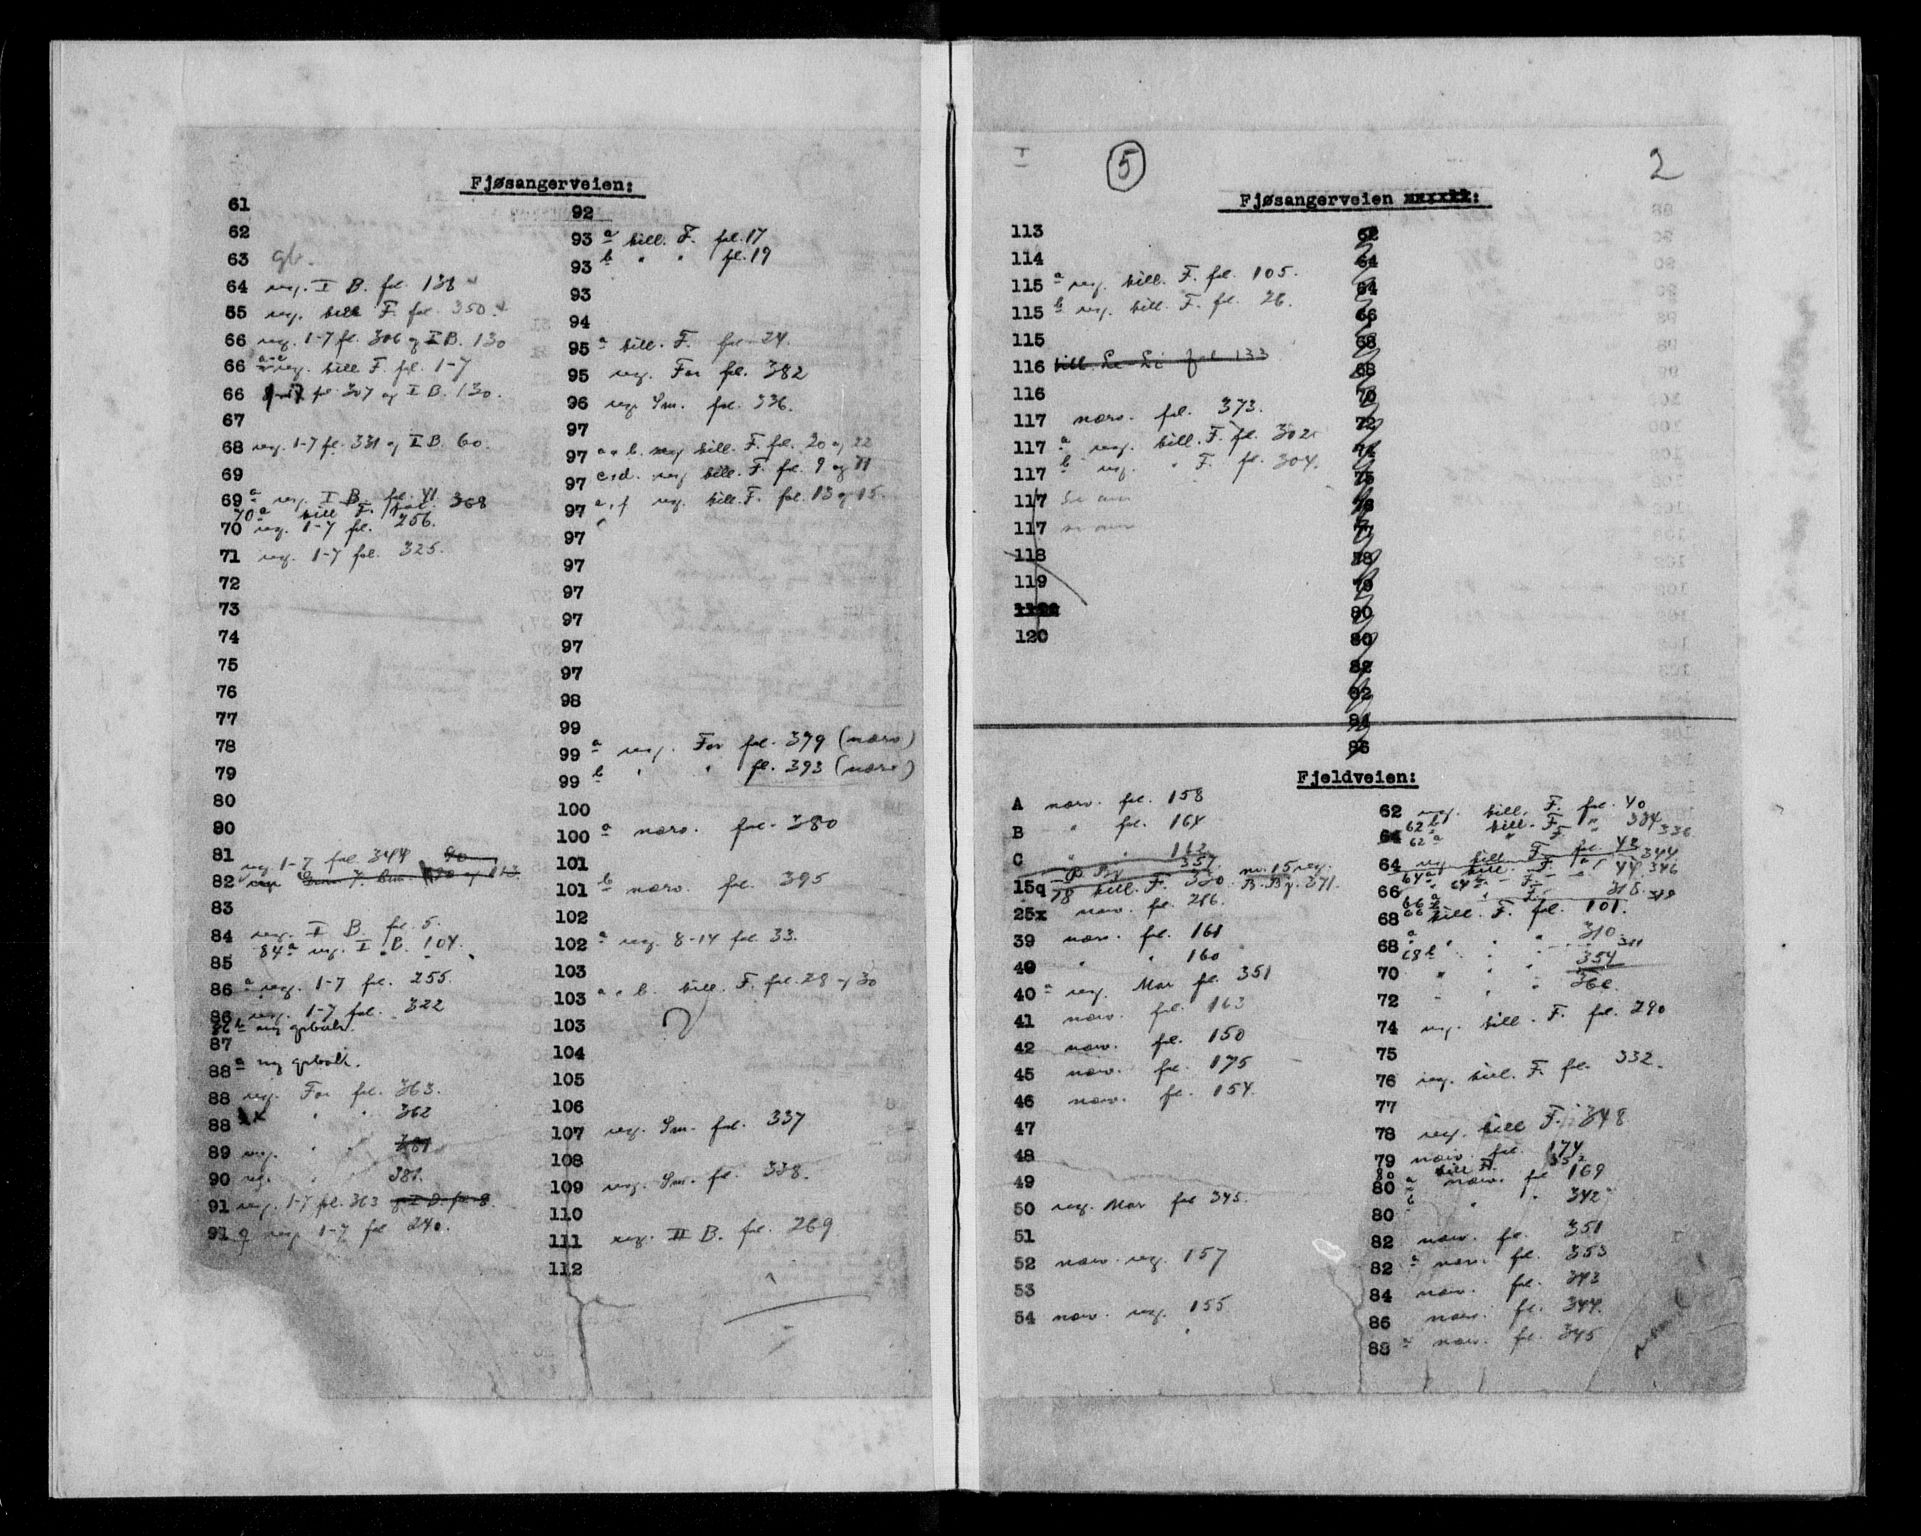 Fjøsangerveien:
61
62
63 gb.
64 reg. I B. fol. 138
65 reg. till F. fol. 350
66 reg. 1-7 fl. 306 og I B. 130
66 reg. till F. fol. 1-7
66 fol. 307 og I B. 130.
67
68 reg. 1-7 fl. 331 og I B. 60.
69
69 a reg. I B. fol. 41
70 a till F. fol. 368
70 reg. 1-7 fl. 256.
71 reg. 1-7 fol. 325.
72
73
74
75
76
77
78
79
80
80
81
reg 1-7 fol 344
82
83
84 reg. I B. fol. 5.
84 a reg. I B. 104.
85
86 a reg. 1-7 fol. 255.
86 reg. 1-7 fol. 322
86 b
87
88 a
88 reg. For fol. 363.
88 " " 362
89 reg. " " 381
90 reg. " 381.
91 reg. 1-7 fl. 363
91 q reg. 1-7 fol 240.
92
93 a till. F. fol. 17
93 b " " fl. 19
93
94
95 a till. F. fol. 24.
95 reg. For fl. 382
96 reg. Sm. fol. 336.
97
97 a o b. reg till. F. fol. 20 og 22
97 c+d. reg till. F. fol. 9 og 11
97 reg. till. F. fol. 13 og 15.
97
97
97
97
97
97
98
99
99 a reg. For fol. 379 (narv)
99 b " " fl. 393 (narv)
100
100 a narv. fol. 380
101
101 b narv. fol. 395
102
102 a reg. 8-14 fol. 33.
103
103 a o b. till. F. fol. 28 og 30
103 ?
104
105
106
107 reg. Sm. fol. 337
108
109 reg. Sm. fl. 338.
110
111 reg. II B. fol. 269
112
5
2
Fjøsangerveien
113
114
115 a reg. till. F. fol. 105.
115 b reg. till. F. fl. 26.
115
116 till. Le-Li fol 133
116
117 narv. fol. 373.
117 a reg. till. F. fl. 302
117 b reg. " F. fl. 304.
117
117
118
119
120
62
64
64
66
68
68
70
72
74
75
76
77
78
79
80
80
82
82
84
86
Fjeldveien:
A narv. fol. 158
B " fol. 164
C " " 162
357.
15q 78 till. F. 330 nr. 15 reg. B. By. 371.
25x narv. fl. 216.
39 narv. fl. 161
40 " " 160
40 a reg. Mar fl. 351
41 narv. fol. 163
42 narv. fol. 150
45 narv. fol. 175
46 narv. fl. 154.
47
48
49
50 reg. Mar fol 345.
51
52 narv. reg. 157
53
54 narv. reg. 155
62 reg. till. F. fol. 40
62 b till. F. " 334
64 62 a " F. " 336
64 reg till. F. fol. 42 344
64 a till. F. 44 346
66 64 b
66 a 318.
68 till. F. fol. 101.
68 a " " " 310
68 b 311
70 " " " 354
72 " " " 366.
74 reg. till. F. fol. 290
75
76 reg. till. F. fol. 332.
77
78 reg. till F. 348
79 narv. fol. 174
80 till F. 352
80 a narv. fol 169
80 b " " 342
82 narv. fl. 351
82 a narv. fl. 353
84 narv. fol. 343
86 narv. fl. 344.
88 a narv. fl. 345